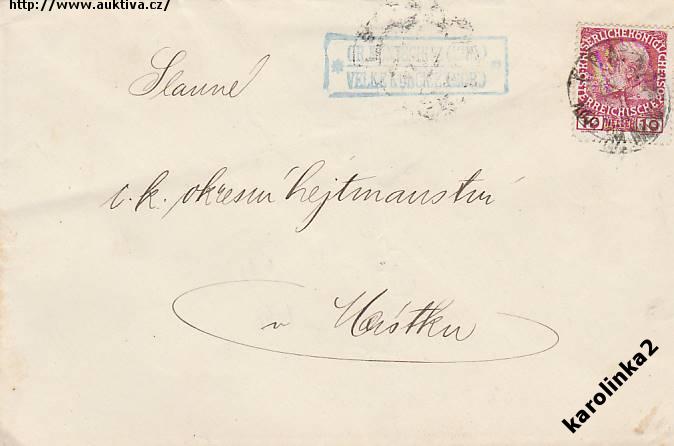 http://www.auktiva.cz/
KAISERLICHE KÖNIGLICHE ÖSTERREICHISCHE
10 HELLER 10
VELKÉ
Slavné
c.k. okresní hejtmanství
v Místku
karolinka2